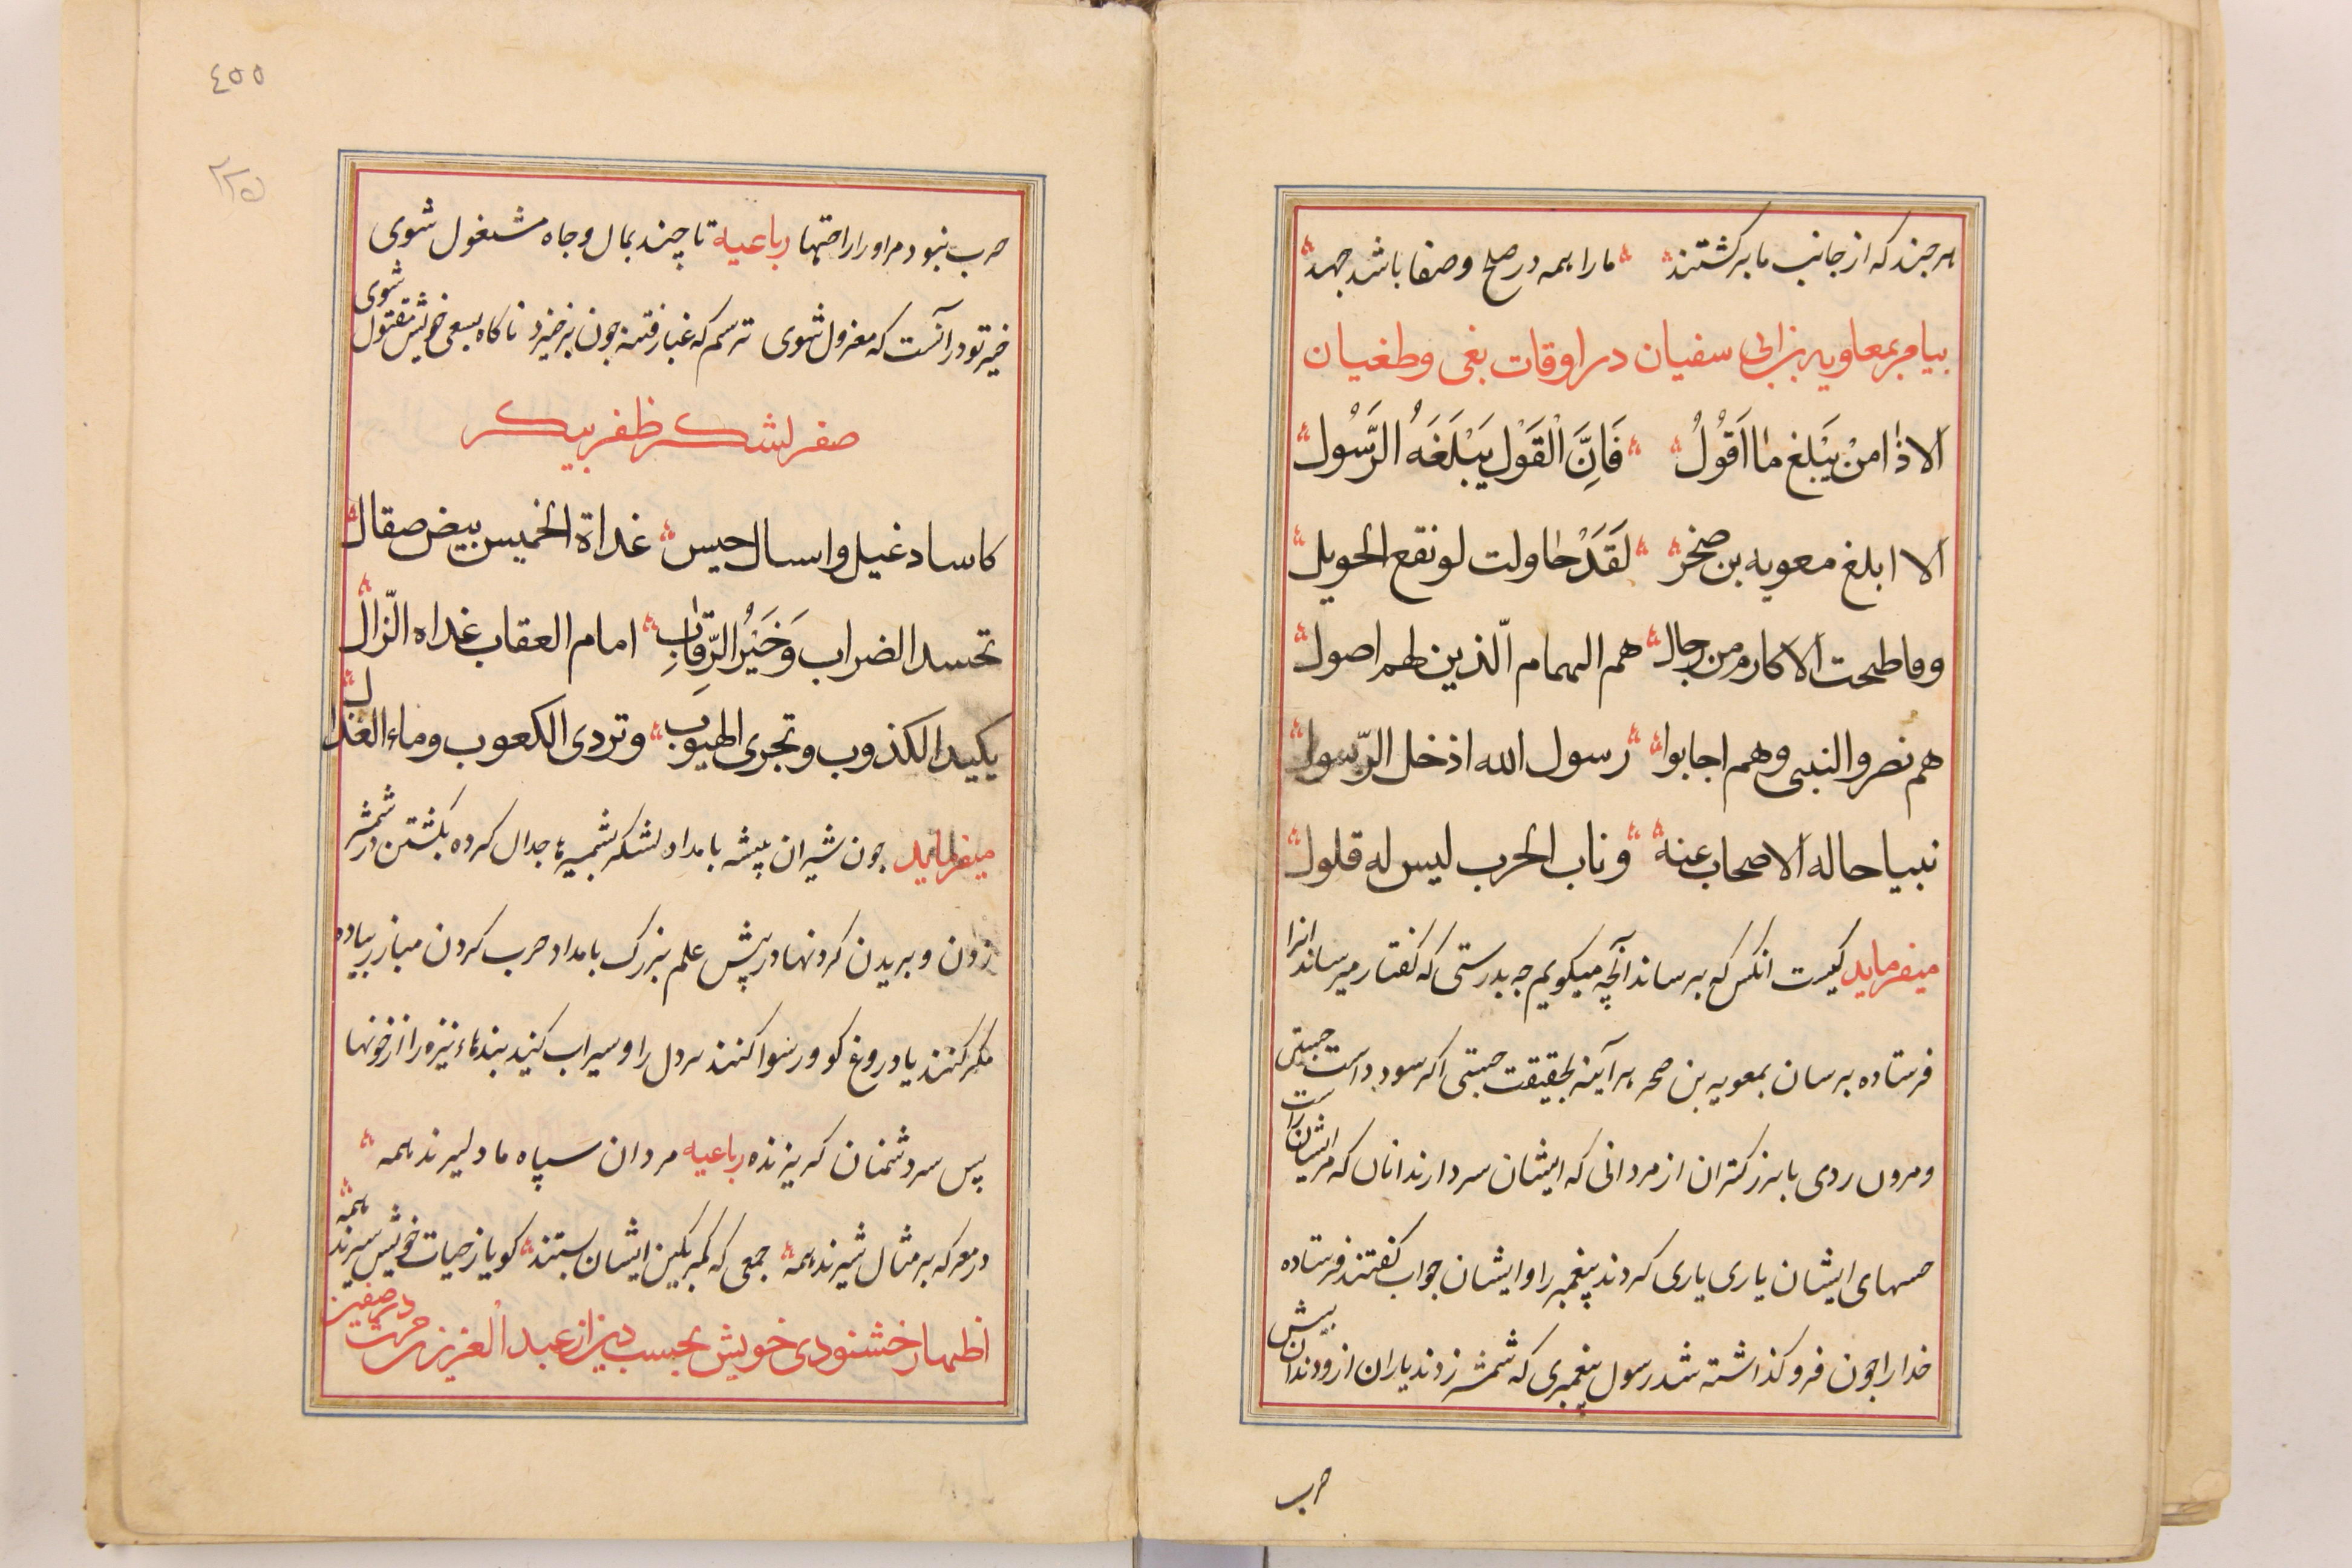 هر چند که از جانب ما برکشتند ما را همه در صلح و صفا باشد جهد
پیام بر معاویه بن ابی سفیان در اوقات بغی و طغیان
اَلا ذٰا مَنْ يَبْلغ مٰا اَقُوْلُ فَاِنَّ الْقَوْل يَبْلَغَهُ الرَّسُول
الا ابلغ معویه بن صخر لَقَدْ حٰاولت لو نقع الحویل
و ما طحت الاکارم من رجال هم الهمام الّذین لهم اصول
هم نصرو النبی و هم اجابوا رسول الله اذ خل الرّسول
نبیا حاله الاصحاب عنه و ناب الحرب لیس له قلول
میفرماید کیست انکس که برساند آنچه میکویم چه بدرستی که کفتار میرساند انرا
فرستاده برسان بمعویه بن صحر هر آینه بحقیقت جستی اکر سود داست جستی
و مرون ردی با بزرکتران از مردانی که ایشان سردارند انان که مر ایشان راست
حسهای ایشان یاری یاری کردند پیغمبر را و ایشان جواب کفتند فرستاده
خدا را چون فرو کذاشته شد رسول پیغمبری که شمشر زدند یاران ازو دندان پیش
حرب
٤٥٥
٢٢٥
حرب نبود مر او را راحتها رباعیه تا چند بمال و جاه مشغول شوی
خیر تو در آنست که معزول شوی ترسم که غبار فتنه چون برخیزد ناکاه بسعی خویش مقتول شوی
صفر لشکر ظفر پیکر
کاساد غیل و اسال حیس غداة الخمیس بیض صقال
تحسد الضراب وَخَیْرُ الرِّقٰابِ امام العقاب غداه الزّال
یکید الکذوب و تجری الهیوب و تردی الکعوب و ماء الغذال
میفرماید چون شیران پیشه بامداد لشکر بشمشیرها جدال کرده بکشتن در شمشر
زدن و بریدن کردنها در پیش علم بزرک بامداد حرب کردن مبارز پیاده
مکر کنند یا دروغ کو و رسوا کنند بردل را و سیراب کنید بندهاء نیزه را از خونها
پس سر دشمنان کریزنده رباعیه مردان سپاه ما دلیرند همه
در معرکه بر مثال شیرند همه جمعی که کمر بکین ایشان بستند کویا ز حیات خویش سیرند همه
اظهار خشنودی خویش بحسب دیز از عبد العزیز حرث در صفین